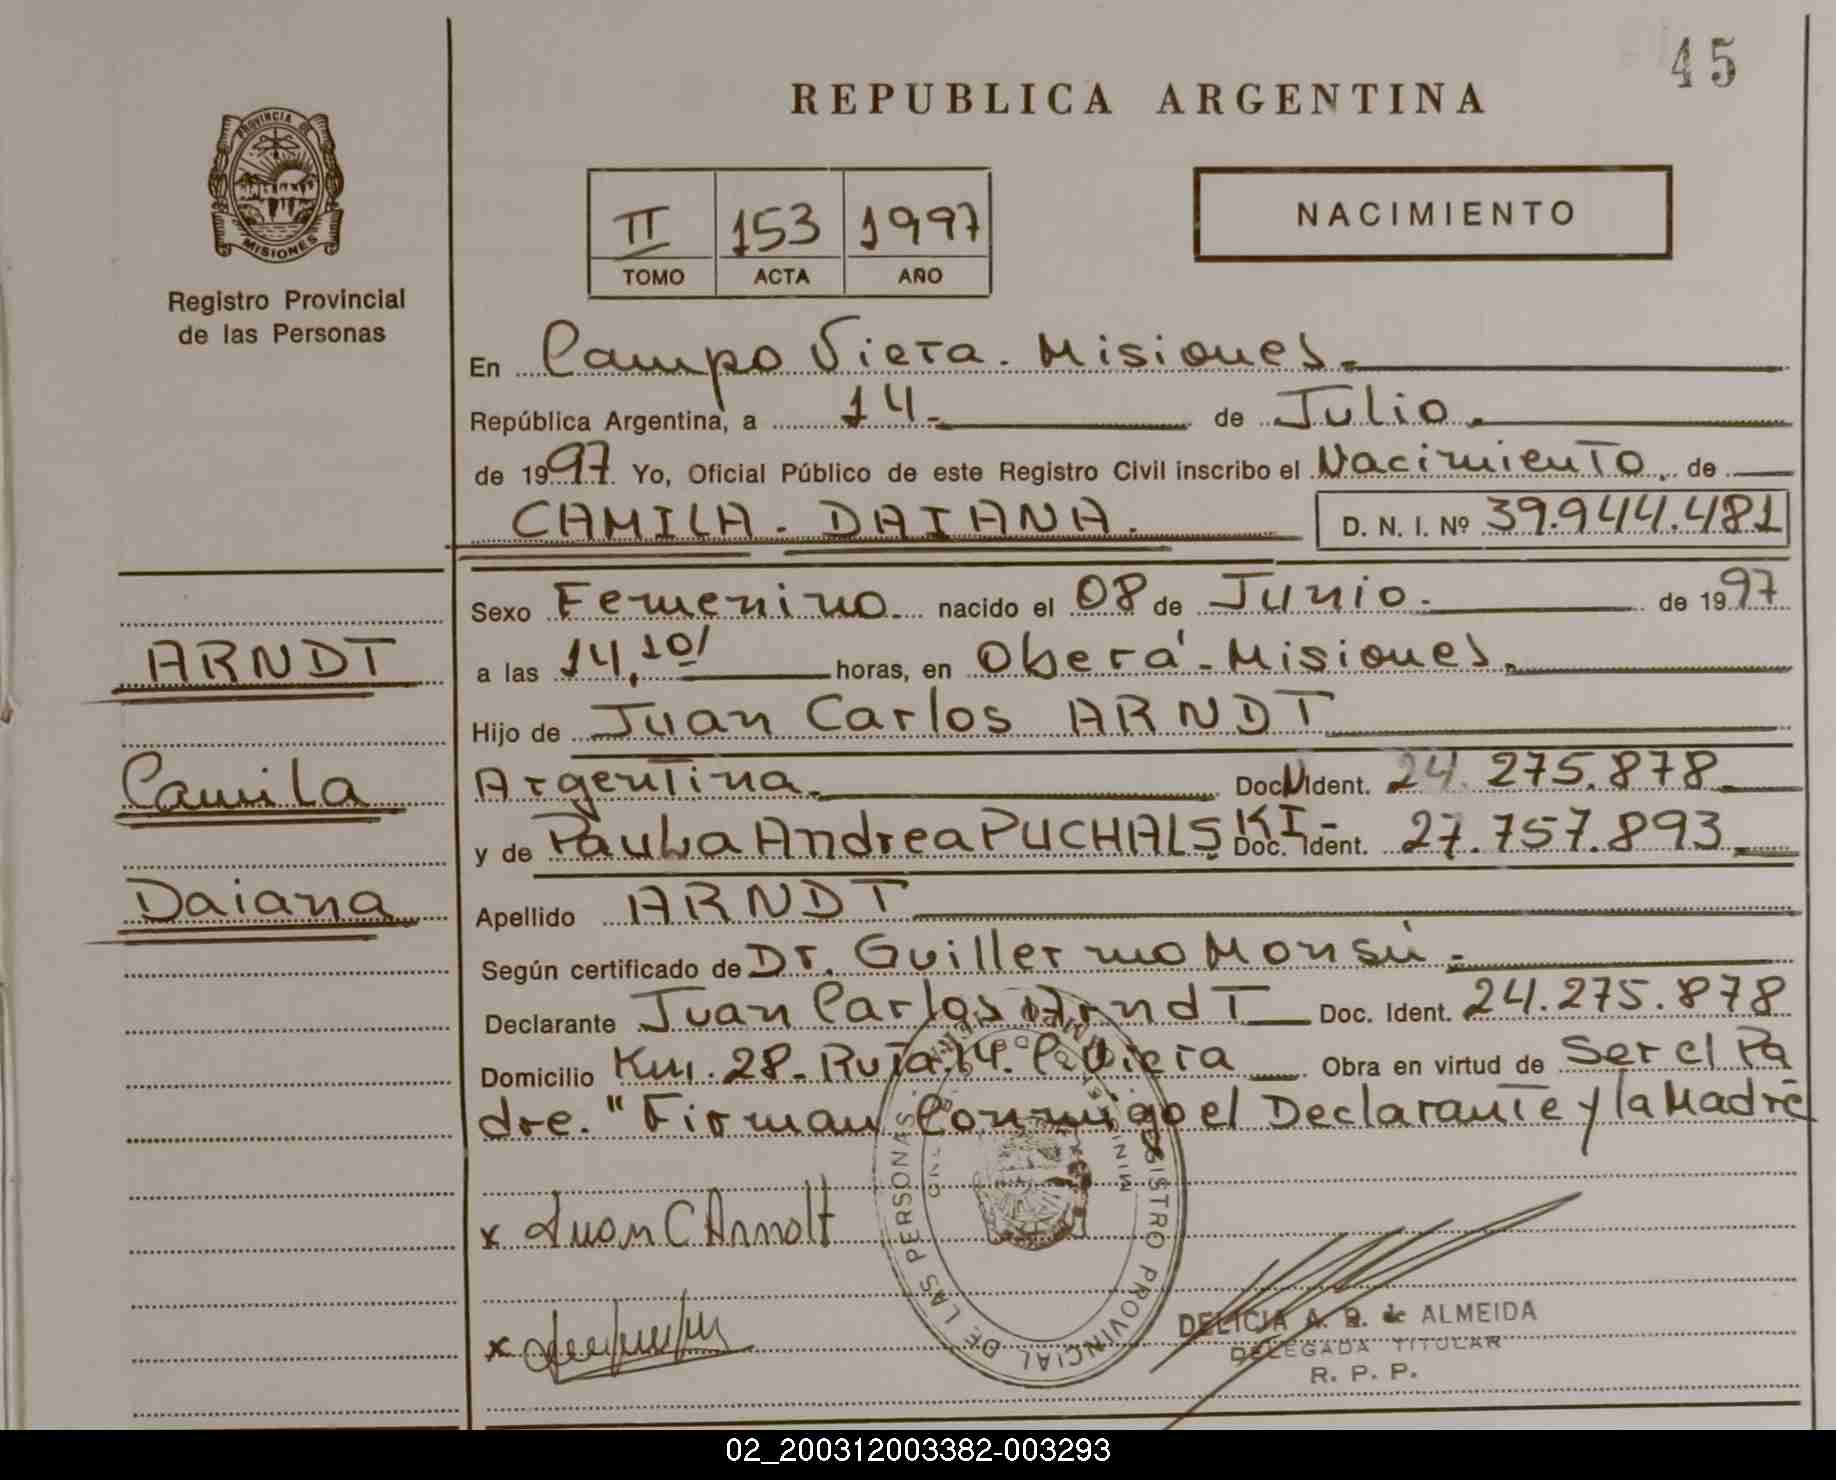 45
REPUBLICA ARGENTINA
PROVINCIA DE
MISIONES
Registro Provincial
de las Personas
II 153 1997
TOMO ACTA AÑO
NACIMIENTO
En Campo Viera. Misiones.
República Argentina, a 14. de Julio.
de 1997 Yo, Oficial Público de este Registro Civil inscribo el Nacimiento, de
CAMILA. DAIANA. D. N. I. Nº 39.944.481
Sexo Femenino. nacido el 08 de Junio. de 1997
ARNDT
a las 14,10' horas, en Oberá - Misiones.
Hijo de Juan Carlos ARNDT
Camila
Argentina. Doc N Ident. 24.275.878
y de Paula Andrea PUCHALSKI - Doc. Ident. 27.757.893
Daiana
Apellido ARNDT
Según certificado de Dr. Guillermo Monsú.
Declarante Juan Carlos Arndt Doc. Ident. 24.275.878
Domicilio Km. 28 - Ruta 14. C. Viera Obra en virtud de Ser el Pa
dre. "Firman Conmigo el Declarante y la Madre
x Juan C Arndt
x
REGISTRO PROVINCIAL DE LAS PERSONAS
DELICIA A. de ALMEIDA
DELEGADA TITULAR
R. P. P.
02_200312003382-003293